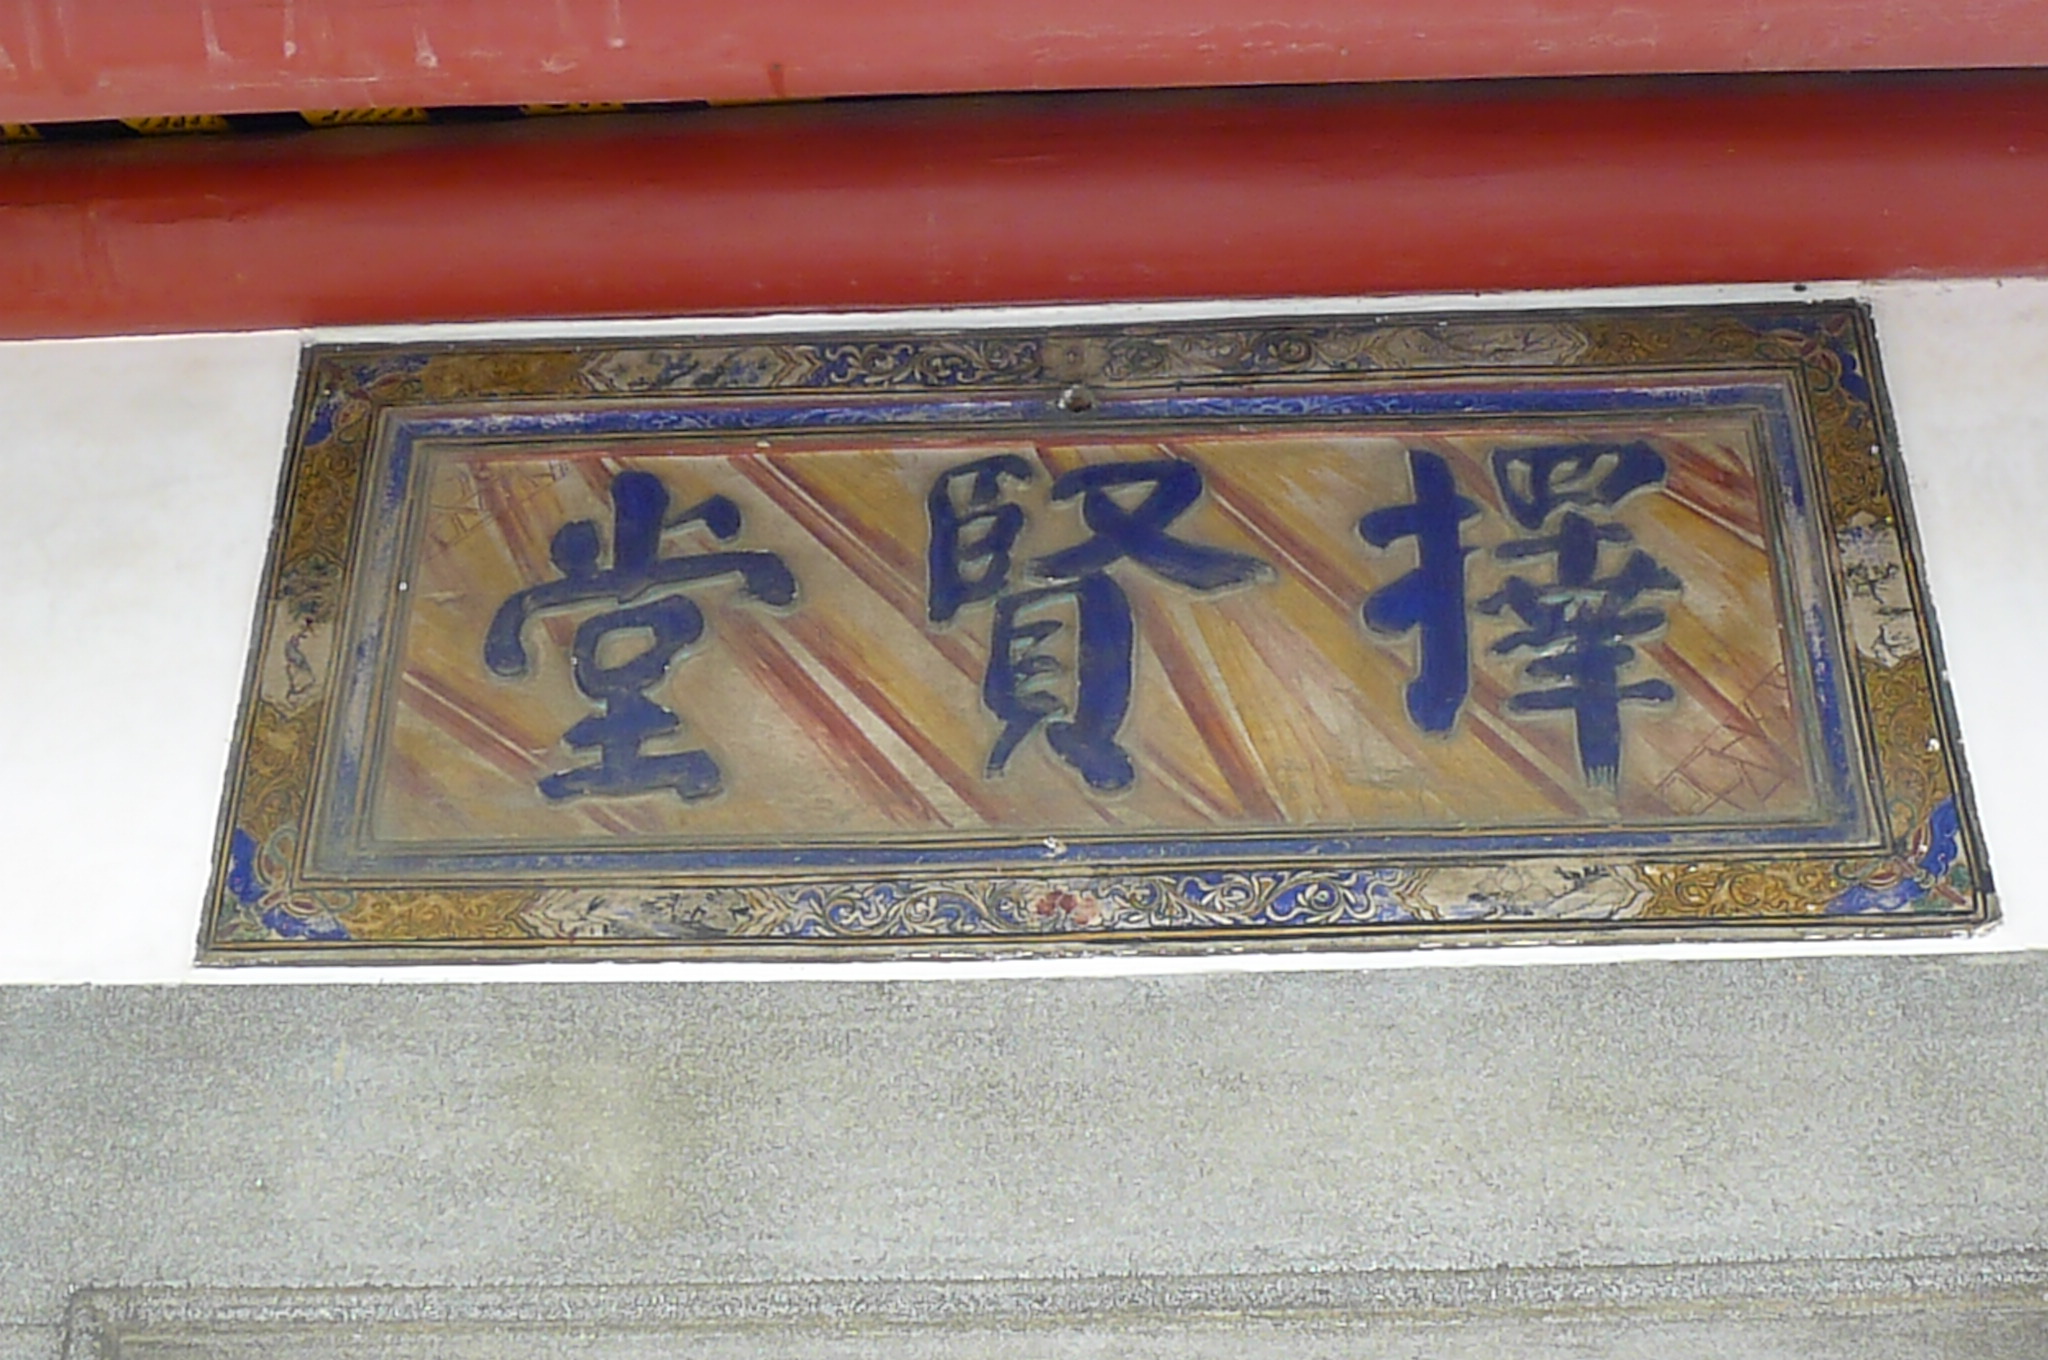 擇賢堂